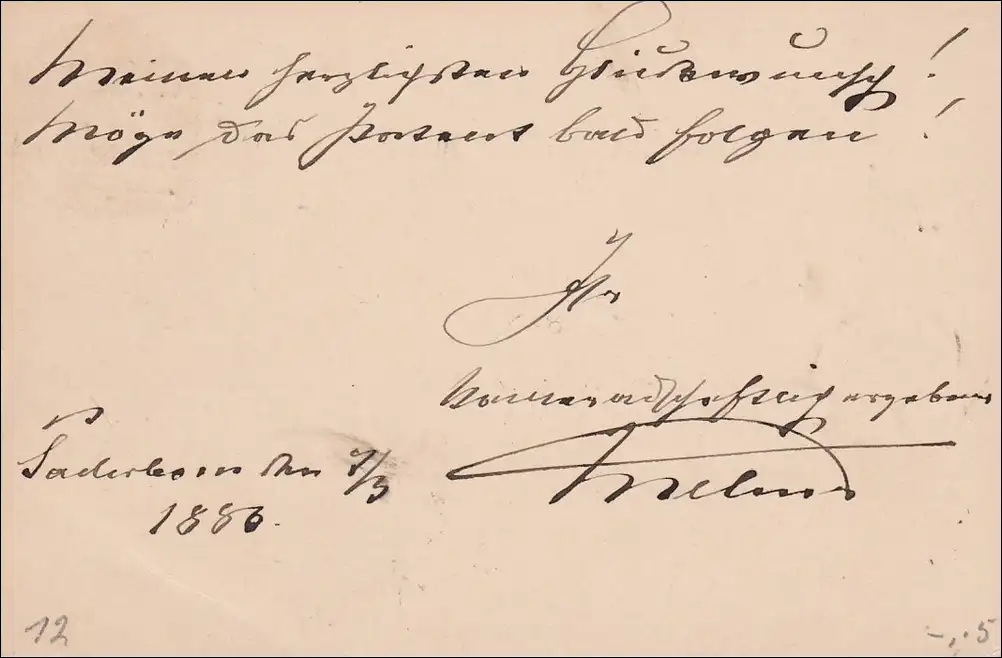 Meinen herzlichsten Glückwunsch!
Möge das Patent bald folgen!
Ihr
kameradschaftlich ergebener
Paderborn den 7/3
1886.
12
-,.5